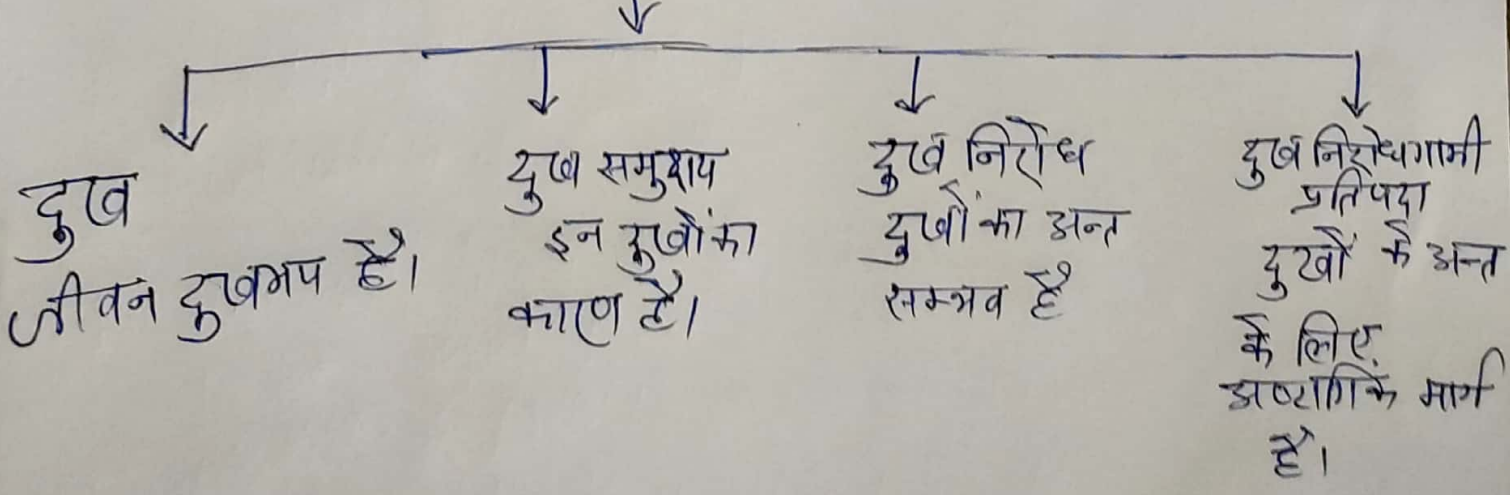 दुख
जीवन दुखमय है।
दुख समुदाय
इन दुखों का
कारण है।
दुख निरोध
दुखों का अन्त
सम्भव है
दुख निरोधगामी
प्रतिपदा
दुखों के अन्त
के लिए
अष्टागिक मार्ग
है।